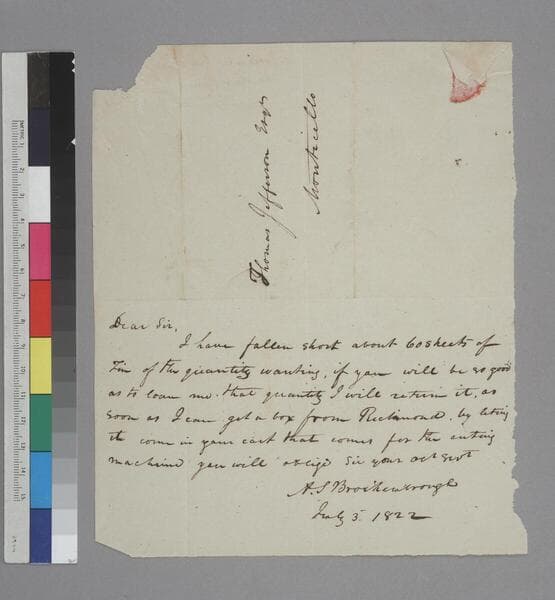 Thomas Jefferson Esqr
Monticello
Dear Sir,
I have fallen short about 60 sheets of
Tin of the quantity wanting, if you will be so good
as to loan me that quantity I will return it, as
soon as I can get a box from Richmond. by leting
it come in your cart that comes for the cuting
machine you will oblige Sir your obt servt
A. S Brockenbrough
July 5. 1822